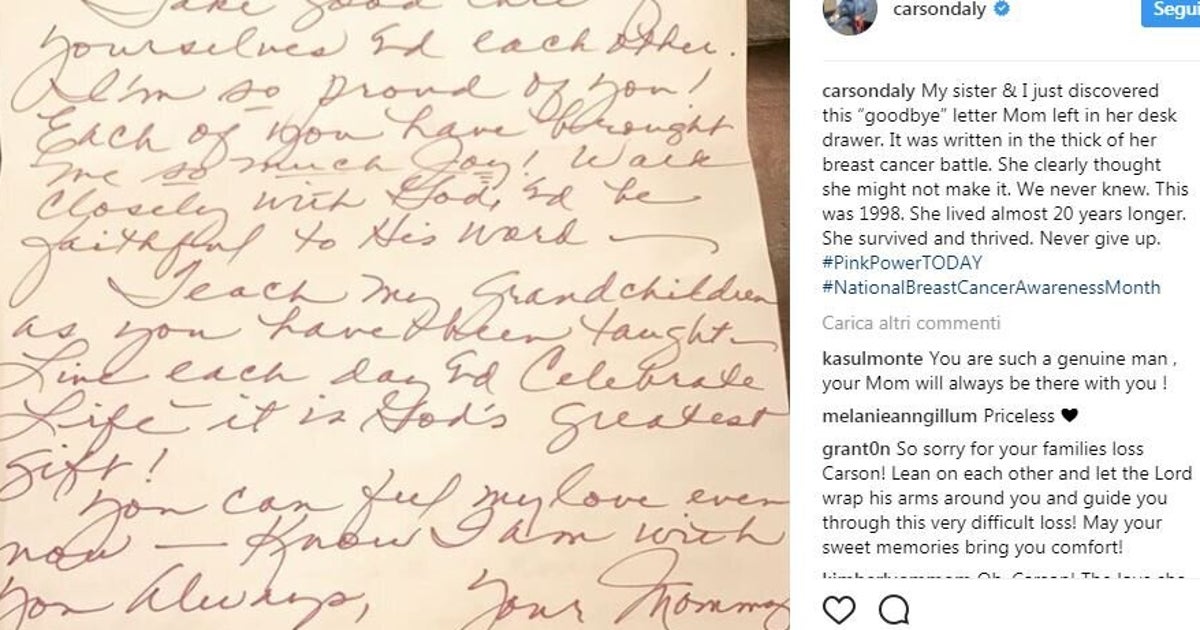 Take good care
yourselves & each other.
I'm so proud of you!
Each of you have brought
me so much Joy! Walk
closely with God, & be
faithful to His word —
Teach my Grandchildren
as you have been taught—
Live each day & Celebrate
Life — it is God's greatest
gift!
You can feel my love even
now — Know I am with
you Always,
Your Mommy
carsondaly
Segui
carsondaly My sister & I just discovered
this “goodbye” letter Mom left in her desk
drawer. It was written in the thick of her
breast cancer battle. She clearly thought
she might not make it. We never knew. This
was 1998. She lived almost 20 years longer.
She survived and thrived. Never give up.
#PinkPowerTODAY
#NationalBreastCancerAwarenessMonth
Carica altri commenti
kasulmonte You are such a genuine man ,
your Mom will always be there with you !
melanieanngillum Priceless 🖤
grant0n So sorry for your families loss
Carson! Lean on each other and let the Lord
wrap his arms around you and guide you
through this very difficult loss! May your
sweet memories bring you comfort!